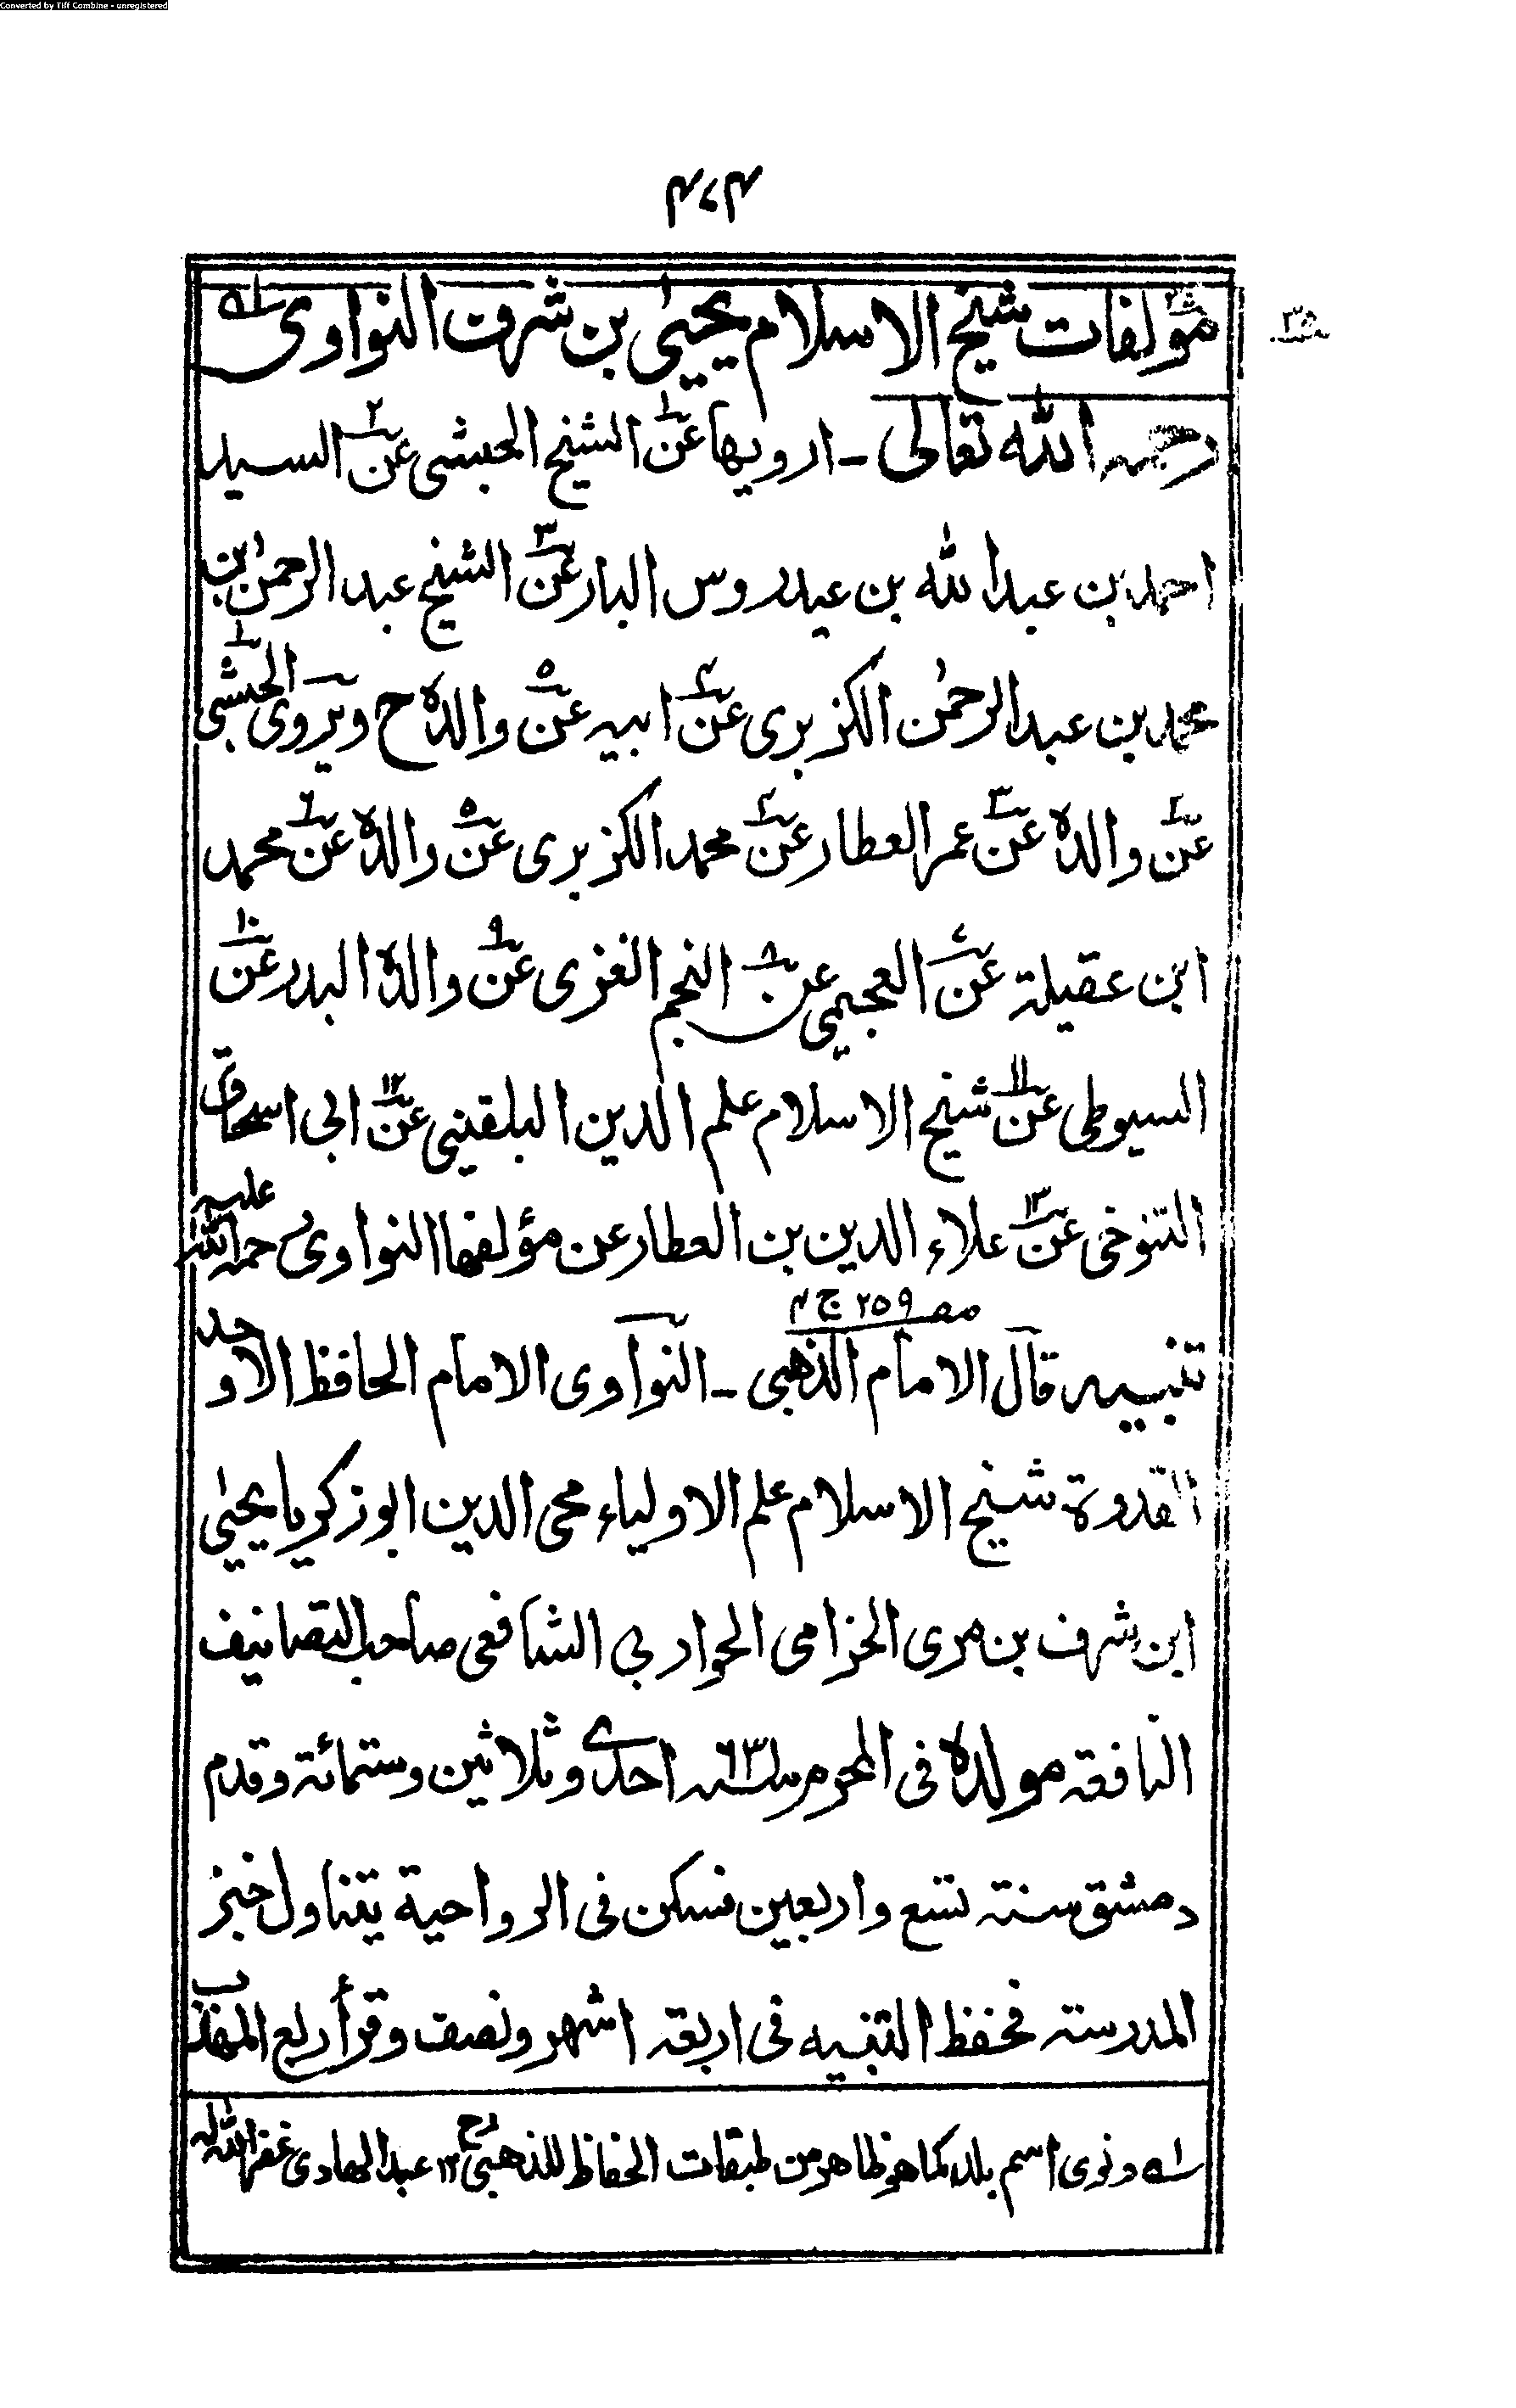 Converted by Tiff Combine - unregistered
۴۷۴
مؤلفات شيخ الاسلام يحيىٰ بن شرف النواوى ١ه
رحمہ اللّٰه تعالى ـ ارويها عن١ الشيخ الحبشى عن٢ السيد
احمد بن عبد اللّٰه بن عيدروس البار عن٣ الشيخ عبد الرحمٰن بن
محمد بن عبد الرحمٰن الكزبرى عن۴ ابيه عن٥ والده ح ويروى الحبشى١
عن٢ والده عن٣ عمر العطار عن۴ محمد الكزبرى عن٥ والده عن٦ محمد
ابن عقيلة عن٧ العجيمى عن٨ النجم الغزى عن٩ والده البدر عن١٠
السيوطى عن١١ شيخ الاسلام علم الدين البلقينى عن١٢ ابى اسحاق
التنوخى عن١٣ علاء الدين بن العطار عن مؤلفها النواوى رحمة اللّٰه عليه
تنبيه قال الامام الذهبى ص ٢٥٩ ج ۴ ـ النواوى الامام الحافظ الاوحد
القدوة شيخ الاسلام علم الاولياء محى الدين ابو زكريا يحيىٰ
ابن شرف بن مرى الحزامى الحواربي الشافعى صاحب التصانيف
النافعة مولده فى المحرم سنة ٦٣١ احدى وثلاثين وستمائة وقدم
دمشق سنة تسع واربعين فسكن فى الرواحية يتناول خبز
المدرسة فحفظ التنبيه فى اربعة اشهر ونصف وقرأ ربع المهذب
١ه ونوى اسم بلد كما هو ظاهر من طبقات الحفاظ للذهبىؒ ١٢ عبد الهادى غفر اللّٰه له